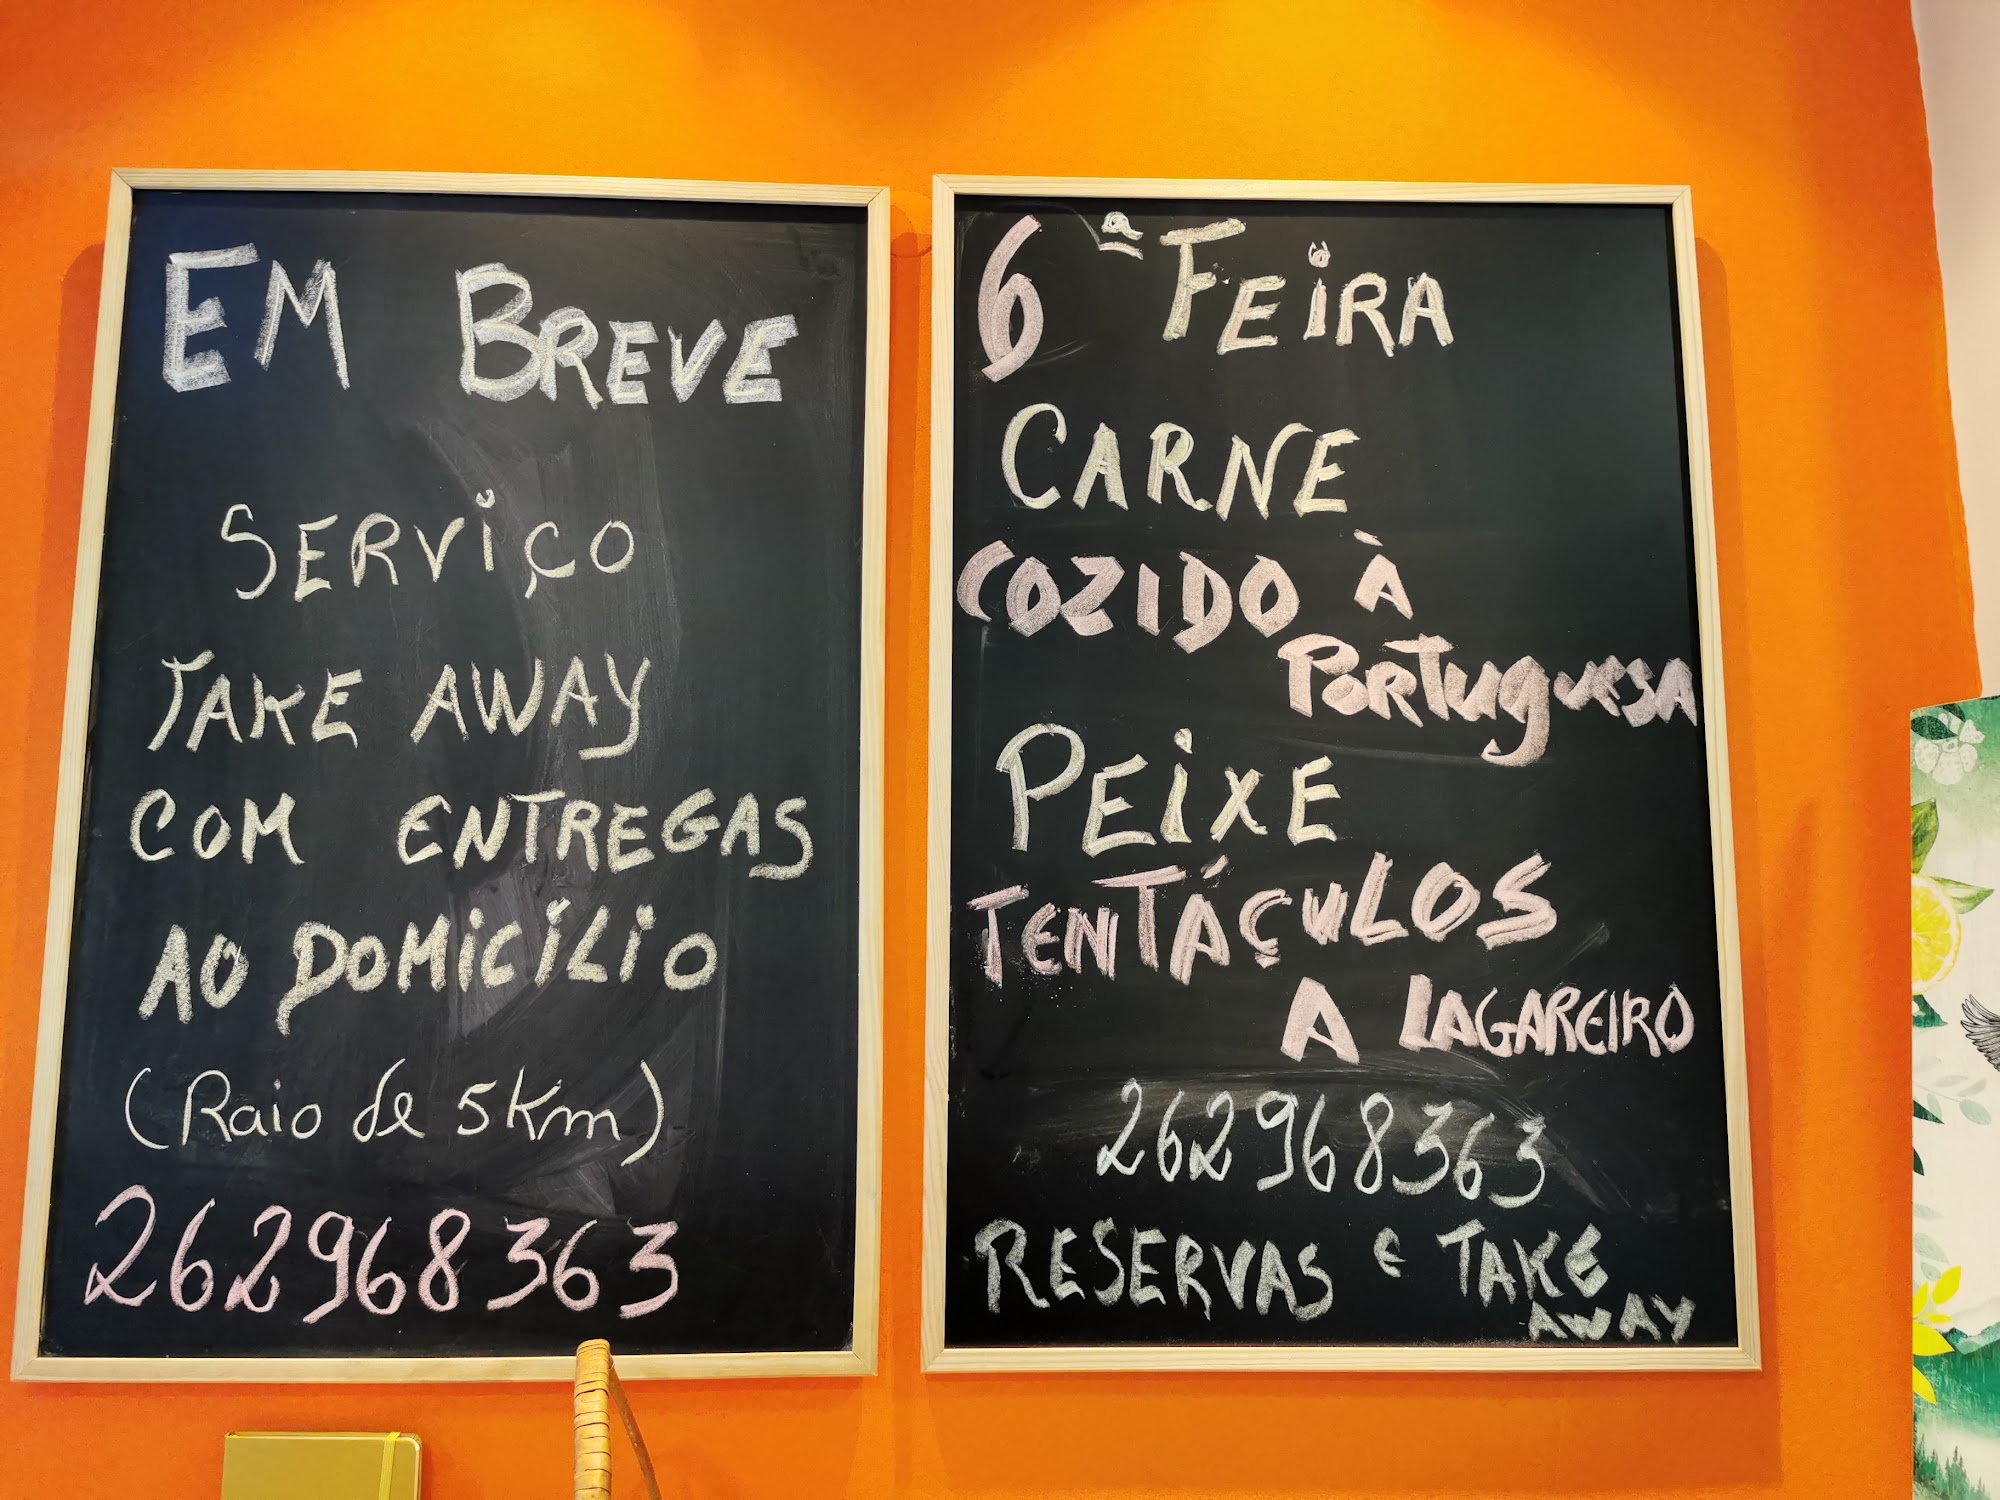 EM BREVE
SERViÇO
TAKE AWAY
COM ENTREGAS
AO DOMiCÍLiO
(Raio de 5Km)
262968363
6ª FEiRA
CARNE
COZIDO À
PORTuguesA
PEiXE
TENTÁÇuLOS
A LAGAREIRO
262968363
RESERVAS e TAKE
AWAY